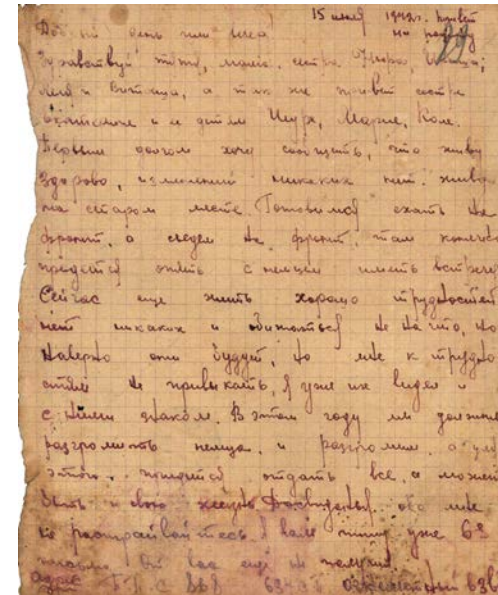 15 июля 1942г. привет
Добрый день или
Здравствуй тятя, мама, сестра Нюра,
Лида и Витица, а так же привет сестре
и и детям Шуре, Марие, Коле.
Первым долгом хочу сообщить, что живу
здорово, изменений никаких нет. живу
на старом месте. Готовимся ехать на
фронт, а следом на фронт, там конечно
придется опять с немцем иметь встречу
Сейчас еще жить хорошо трудностей
нет никаких и обижаться не на что, но
наверно они будут, но мне к трудно
стям не привыкать, я уже их видел и
с ними знаком. В этом году мы должны
разгромить немца, и разгромим, а для
этого придется отдать все, а может
быть и свою жизнь. обо мне
не расстраивайтесь. Я вам пишу уже 6е
письмо от вас еще не получил
адрес 63